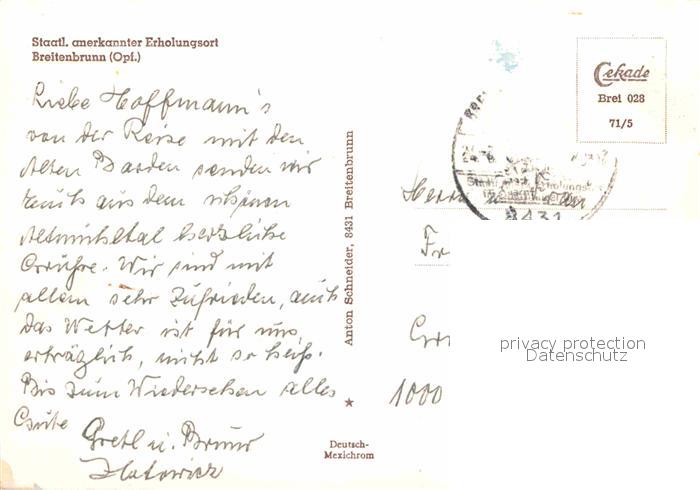 Staatl. anerkannter Erholungsort
Breitenbrunn (Opf.)
Liebe Hoffmann's
von der Reise mit den
Alten Barden senden wir
Euch aus dem schönen
Altmühltal herzliche
Grüße. Wir sind mit
allem sehr zufrieden, auch
das Wetter ist für uns
erträglich, nicht so heiß.
Bis zum Wiedersehen alles
Gute
Gretl u. Bruno
Anton Schneider, 8431 Breitenbrunn
Deutsch-
Mexichrom
Cekade
Brei 028
71/5
8431
Fr
1000
privacy protection
Datenschutz